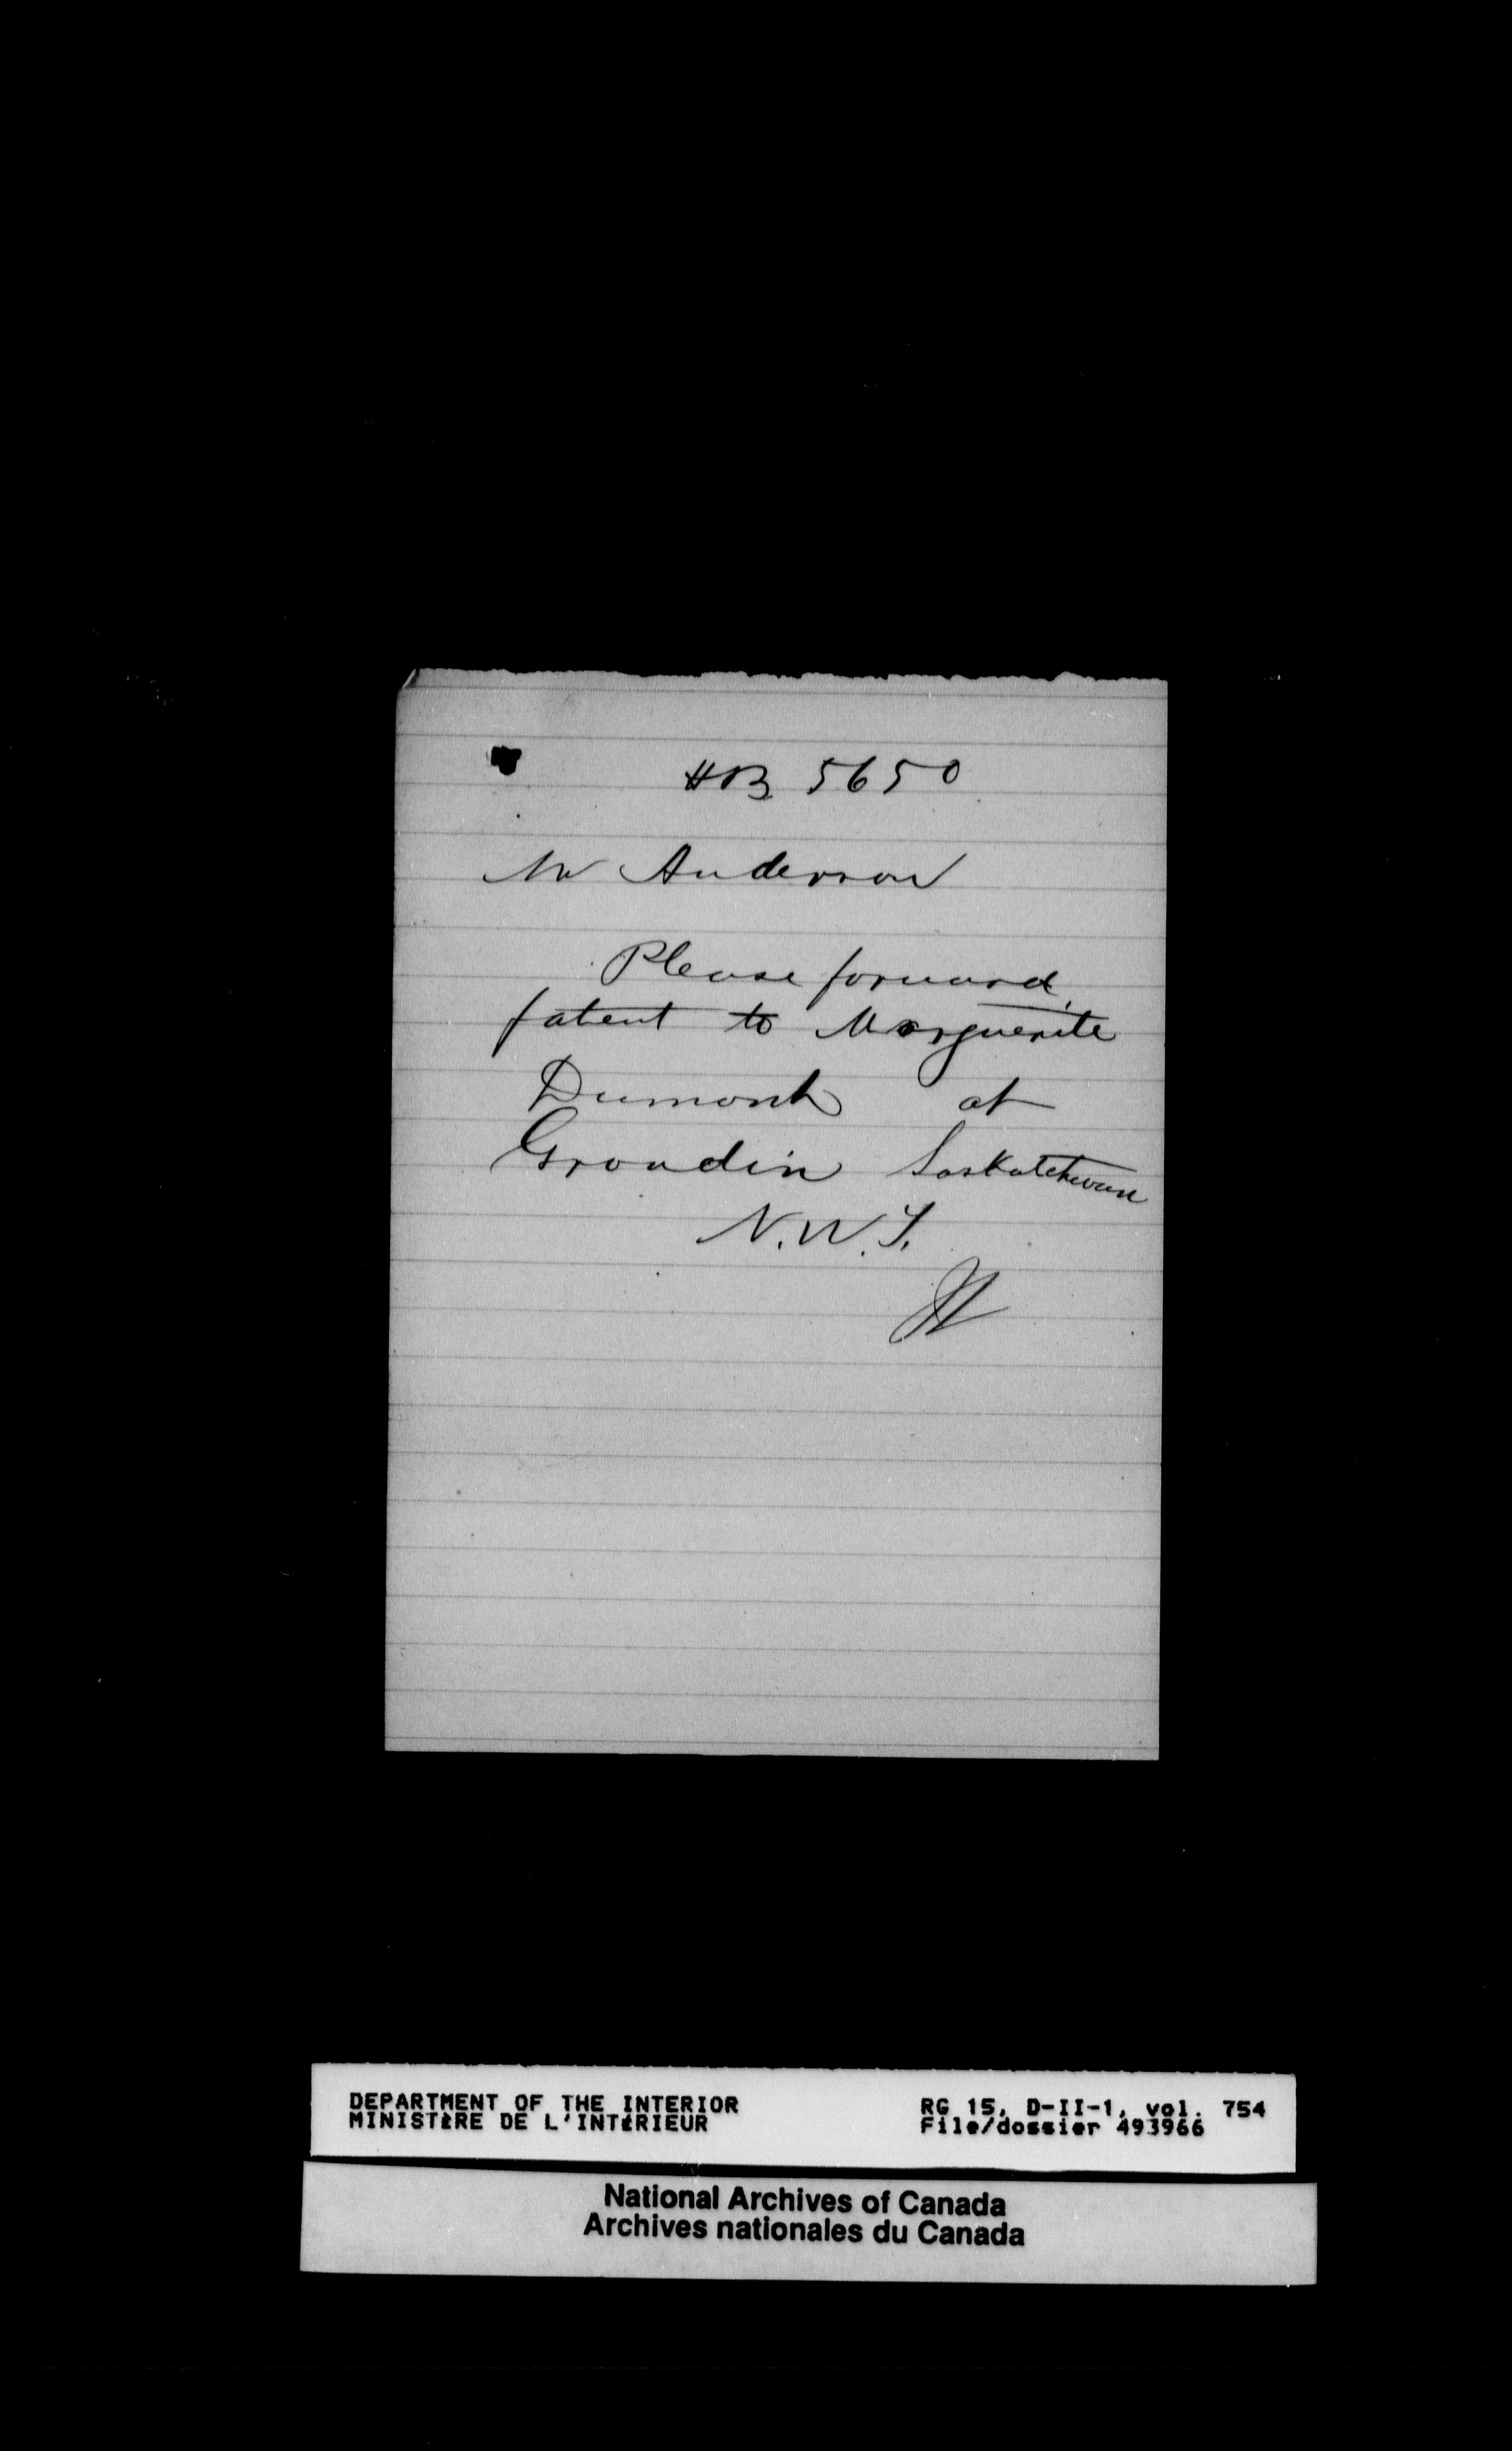 HB 5650
Mr Anderson
Please forward
patent to Marguerite
Dumont at
Grondin Saskatchewan
N.W.T.
DEPARTMENT OF THE INTERIOR
MINISTÈRE DE L'INTÉRIEUR
RG 15, D-II-1, vol. 754
File/dossier 493966
National Archives of Canada
Archives nationales du Canada